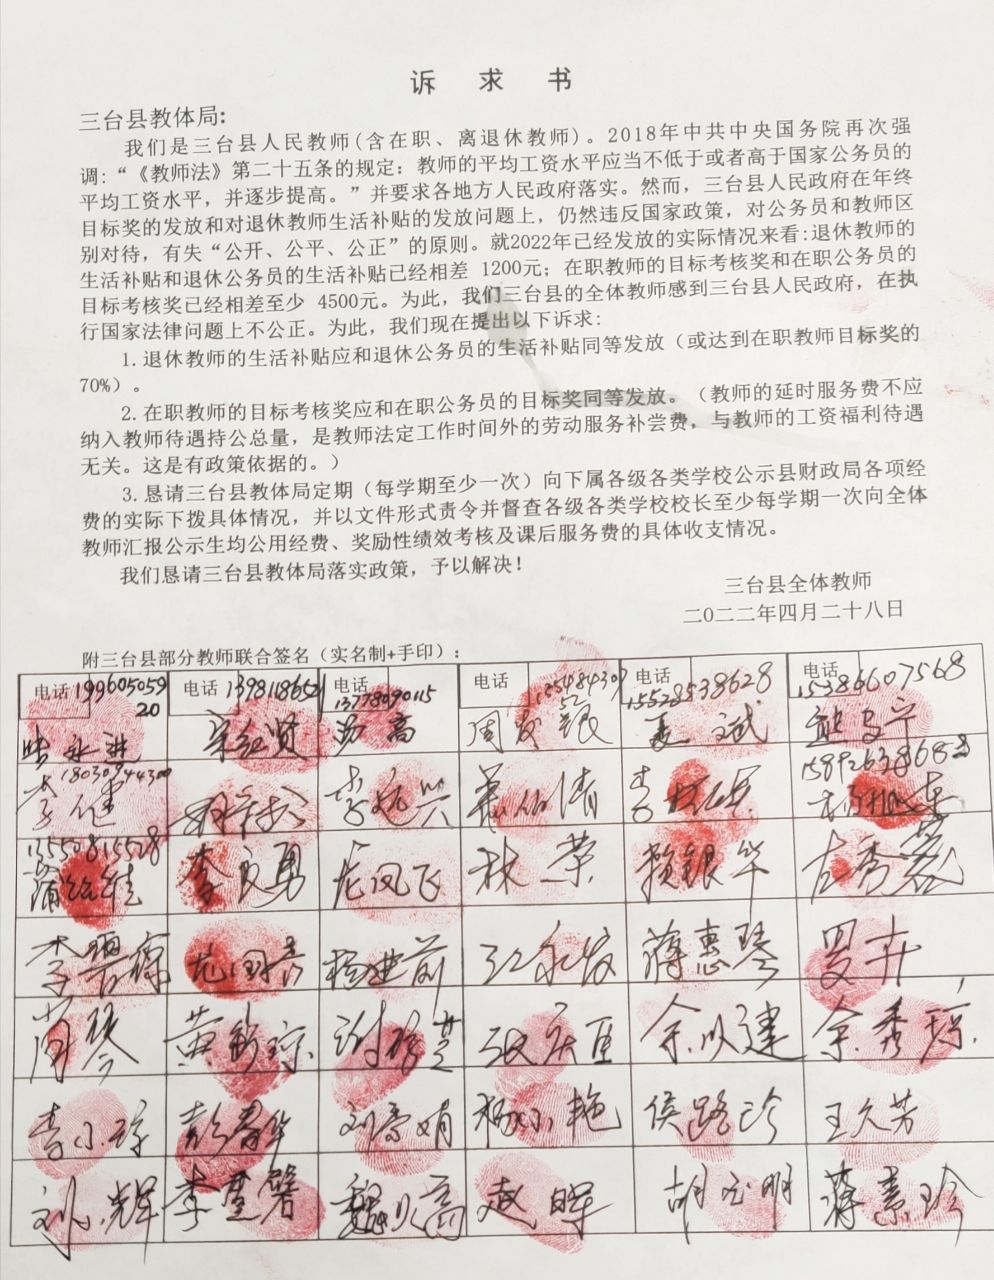 诉 求 书
三台县教体局:
我们是三台县人民教师(含在职、离退休教师)。2018年中共中央国务院再次强
调:“《教师法》第二十五条的规定: 教师的平均工资水平应当不低于或者高于国家公务员的
平均工资水平, 并逐步提高。”并要求各地方人民政府落实。然而, 三台县人民政府在年终
目标奖的发放和对退休教师生活补贴的发放问题上, 仍然违反国家政策, 对公务员和教师区
别对待, 有失“公开、公平、公正”的原则。就2022年已经发放的实际情况来看:退休教师的
生活补贴和退休公务员的生活补贴已经相差 1200元; 在职教师的目标考核奖和在职公务员的
目标考核奖已经相差至少 4500元。为此, 我们三台县的全体教师感到三台县人民政府, 在执
行国家法律问题上不公正。为此, 我们现在提出以下诉求:
1. 退休教师的生活补贴应和退休公务员的生活补贴同等发放 (或达到在职教师目标奖的
70%) 。
2. 在职教师的目标考核奖应和在职公务员的目标奖同等发放。 (教师的延时服务费不应
纳入教师待遇持公总量, 是教师法定工作时间外的劳动服务补尝费, 与教师的工资福利待遇
无关。这是有政策依据的。)
3. 恳请三台县教体局定期 (每学期至少一次) 向下属各级各类学校公示县财政局各项经
费的实际下拨具体情况, 并以文件形式责令并督查各级各类学校校长至少每学期一次向全体
教师汇报公示生均公用经费、奖励性绩效考核及课后服务费的具体收支情况。
我们恳请三台县教体局落实政策, 予以解决!
三台县全体教师
二〇二二年四月二十八日
附三台县部分教师联合签名 (实名制+手印) :
电话 19960505920 电话 电话 13778090115 电话 电话 15528538628 电话 15386607568
李健
李文勇 龙凤飞 林荣 赖银华 左秀蓉
龙国吉 杨进前 江永发 蒋惠琴 罗卉
周琴 黄 琼 余以建 余秀琼
李小琼 彭春华 杨小艳 侯路珍 王久芳
刘小辉 赵晖 胡 明 蒋素珍